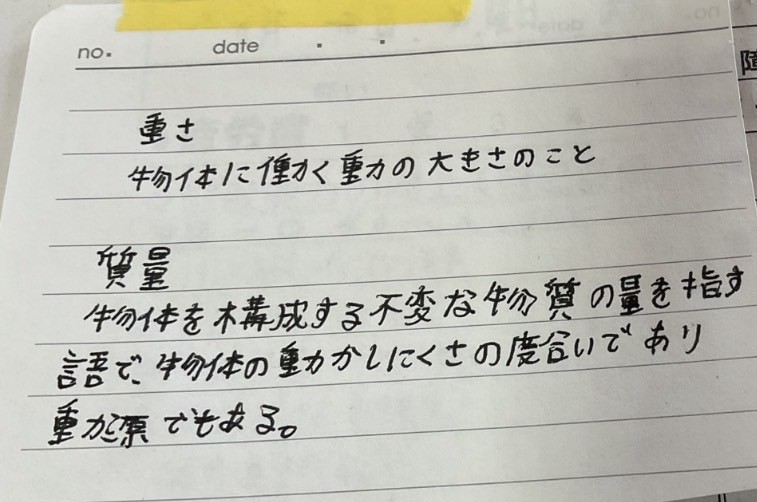 no. date . .
重さ
物体に働く重力の大きさのこと
質量
物体を構成する不変な物質の量を指す
語で、物体の動かしにくさの度合いであり
重力源でもある。